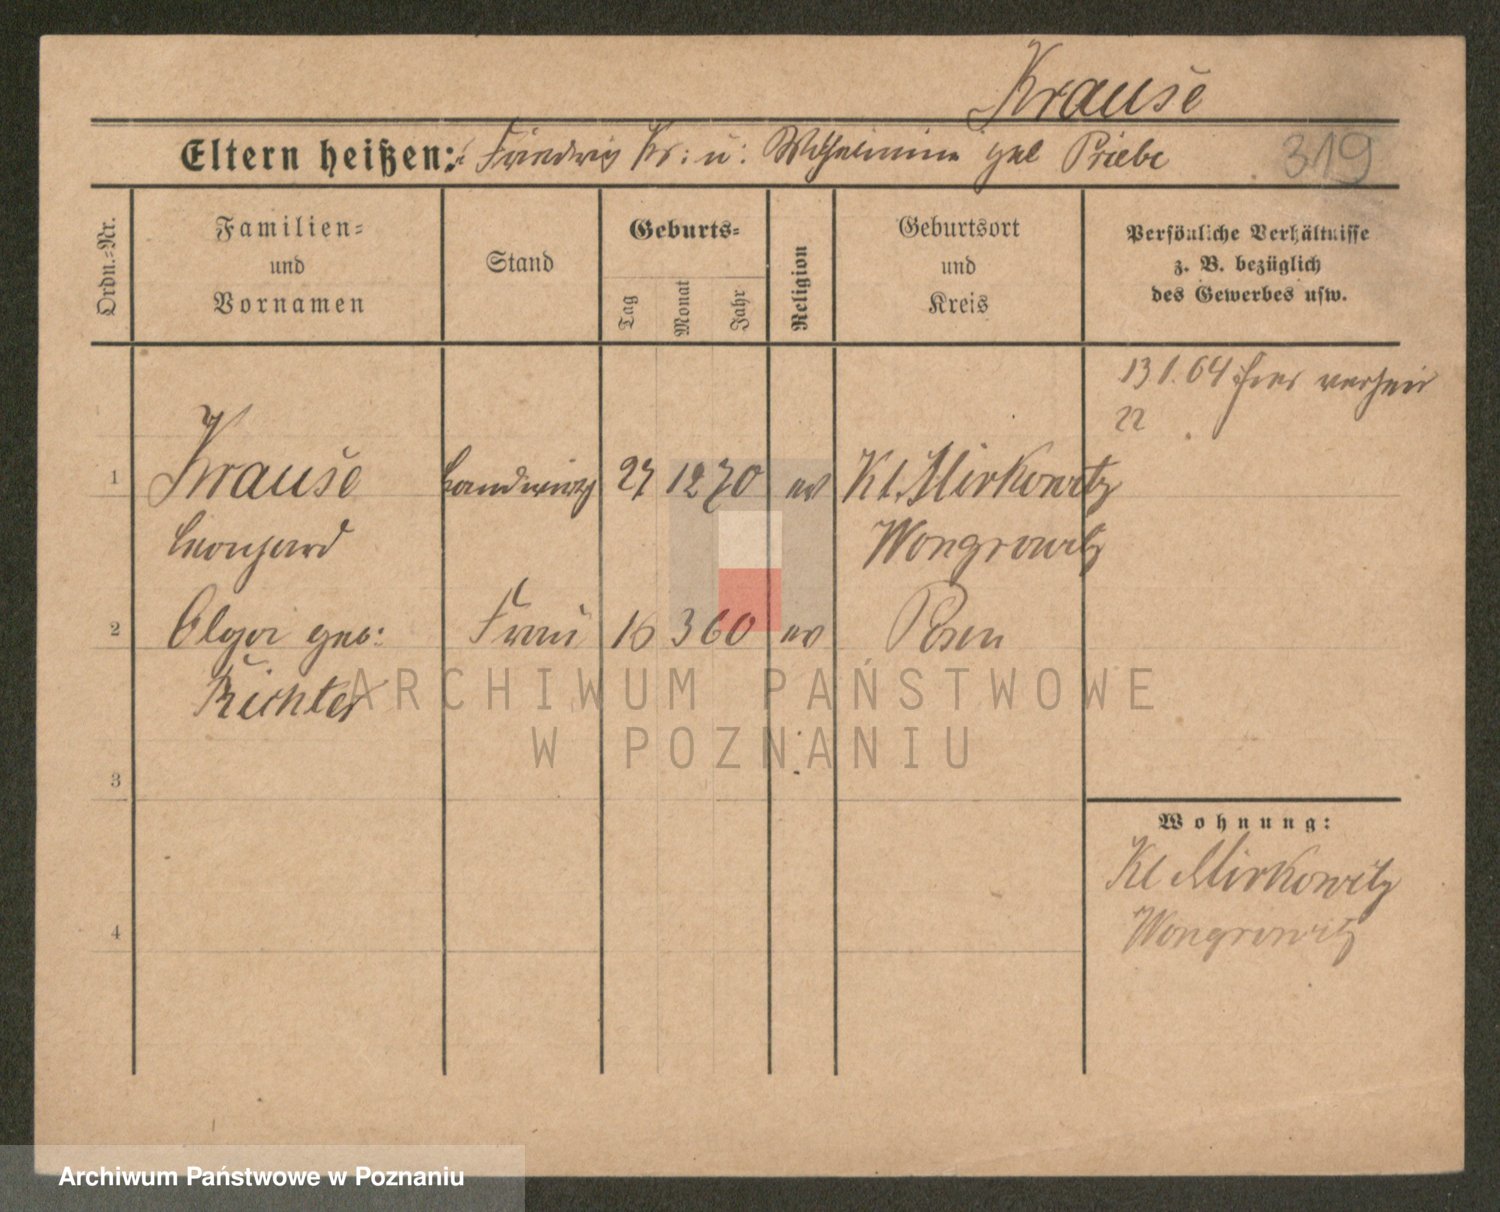 Krause
Eltern heißen: Friedrich Kr: u: Wilhelmine geb Priebe
319
Ordn.-Nr.
Familien-
und
Vornamen
Stand
Geburts-
Tag
Monat
Jahr
Religion
Geburtsort
und
Kreis
Persönliche Verhältnisse
z. B. bezüglich
des Gewerbes usw.
13 1. 64 hier verheir
22
1 Krause Landwirth 27 12 70 ev Kl. Mirkowitz
Leonhard Wongrowitz
2 Olga geb: Frau 16 3 60 ev Posen
Richter
ARCHIWUM PAŃSTWOWE
W POZNANIU
3
Wohnung:
Kl Mirkowitz
4
Wongrowitz
Archiwum Państwowe w Poznaniu